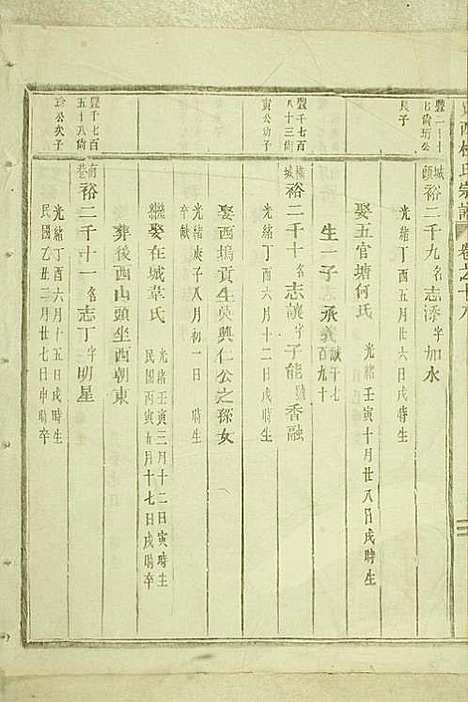 氏宗譜 卷之十八
城頭 裕二千九名志添字如水
長子
光緒丁酉五月廿六日戌時生
娶五官塘何氏 光緒壬寅十月廿八日戌時生
生一子 承義 誠千七百九十
豐千七百八十三衛
寅公幼子
城 裕二千十名志讓字子能號香融
光緒丁酉六月十
日
時生
娶西塢貢生英興仁公之孫女
光緒庚子八月初一日 時生
卒缺
繼娶在城韋氏 光緒壬寅三月十二日寅時生
民國丙寅五月十七日戌時卒
葬後西山頭坐西朝東
豐千七百五十八衛
珍公次子
裕二千十一名志丁字明星
光緒丁酉六月十五日戌時生
民國乙丑二月廿七日申時卒